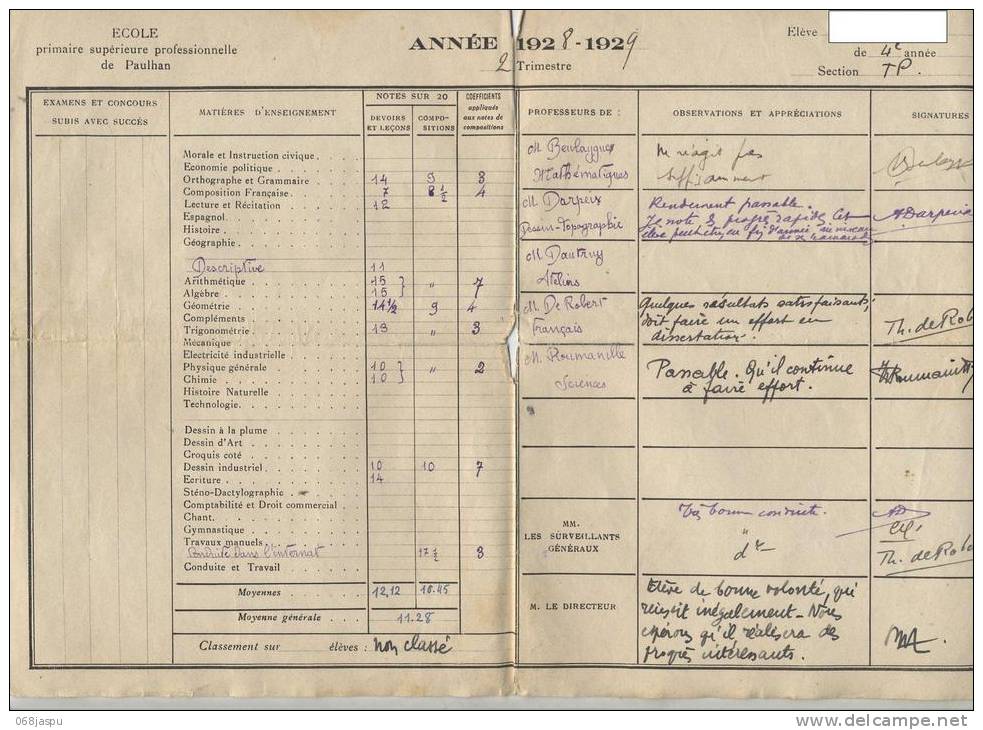 ECOLE
primaire supérieure professionnelle
de Paulhan
ANNÉE 1928-1929
2 Trimestre
Elève
de 4e année
Section TP.
EXAMENS ET CONCOURS
SUBIS AVEC SUCCÈS
MATIÈRES D'ENSEIGNEMENT
NOTES SUR 20
DEVOIRS ET LEÇONS
COMPO-SITIONS
COEFFICIENTS
appliqués
aux notes de
compositions
PROFESSEURS DE :
OBSERVATIONS ET APPRÉCIATIONS
SIGNATURES
Morale et Instruction civique
Economie politique
Orthographe et Grammaire 14 9 3
Composition Française 7 8 1/2 4
Lecture et Récitation 12
Espagnol
Histoire
Géographie
Descriptive 11
Arithmétique 15 } " 7
Algèbre 15
Géométrie 14 1/2 9 4
Compléments
Trigonométrie 13 " 3
Mécanique
Electricité industrielle
Physique générale 10 } " 2
Chimie 10
Histoire Naturelle
Technologie
Dessin à la plume
Dessin d'Art
Croquis coté
Dessin industriel 10 10 7
Ecriture 14
Sténo-Dactylographie
Comptabilité et Droit commercial
Chant
Gymnastique
Travaux manuels
Conduite dans l'internat 17 1/2 3
Conduite et Travail
Moyennes 12,12 10.45
Moyenne générale 11.28
Classement sur élèves : non classé
M.
Mathématiques
ne réagit pas
suffisamment
M. Darpeix
Dessin-Topographie
Rendement passable.
Je note des progrès rapides. Cet
élève peut être, en fin d'année au niveau
de ses camarades
ADarpeix
M. Dautruy
Ateliers
M. De Robert
Français
Quelques résultats satisfaisants;
doit faire un effort en
dissertation.
Th. de Rob
M. Roumanille
Sciences
Passable. Qu'il continue
à faire effort.
Roumanille
MM.
LES SURVEILLANTS
GÉNÉRAUX
Très bonne conduite.
"
do
AD
Th. de Rob
M. LE DIRECTEUR
Elève de bonne volonté, qui
réussit inégalement - Nous
espérons qu'il réalisera des
progrès intéressants.
068jaspu
www.delcampe.net